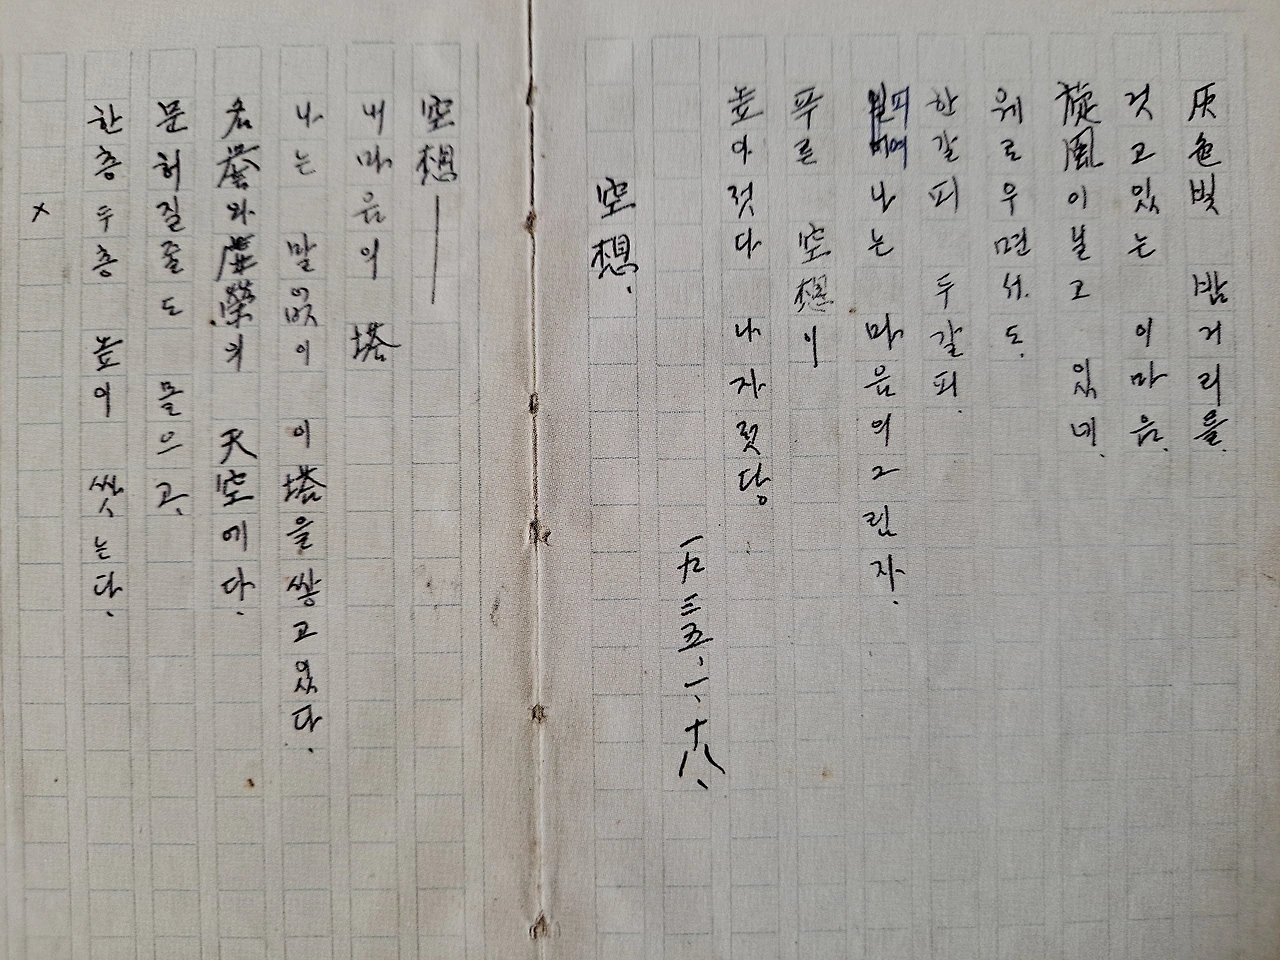 灰色빛 밤거리를.
것고있는 이마음.
旋風이닐고 있네.
웨로우면서.도.
한갈피 두갈피.
피여나는 마음의그림자.
푸른 空想이
높아젓다 나자릿당。
一九三五、一、十八、
空想.
空想——
내마음의 塔
나는 말없이 이塔을쌓고있다.
名譽와虛榮의 天空에다.
문허질줄도 몰으고.
한층두층 높이 쌋는다.
×